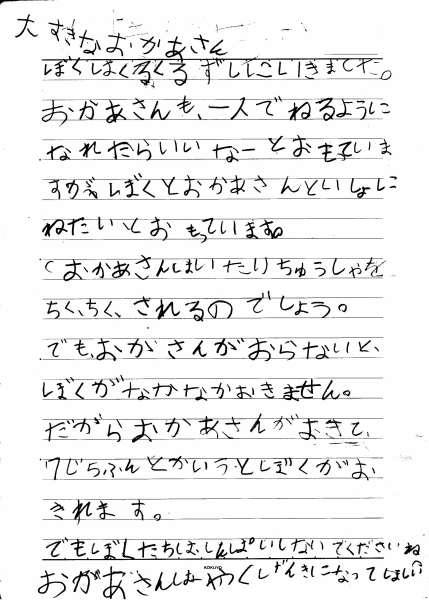 大すきなおかあさん
ぼくはくるくるずしにいきました。
おかあさんも、一人でねるように
なれたらいいなーとおもていま
すがぼくとおかあさんといしょに
ねたいとおもっています。
おかあさんはいたいちゅうしゃを
ちく、ちく、されるのでしょう。
でも、おかさんがおらないと、
ぼくがなかなかおきません。
だからおかあさんがおきて、
7じらふんとかいうとぼくがお
きれます。
でもぼくたちはしんぱいしないでくださいね
おかあさんはやくげんきになってほしい
KOKUYO